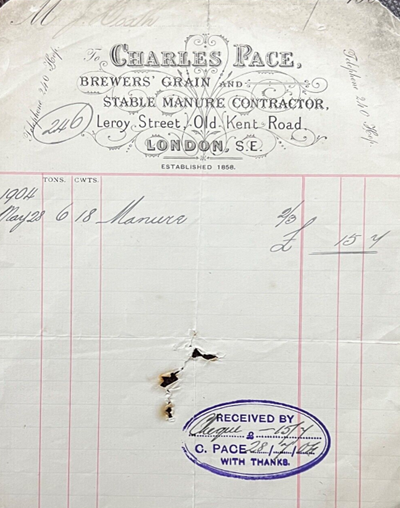 M
To CHARLES PACE,
BREWERS' GRAIN AND
STABLE MANURE CONTRACTOR,
Leroy Street, Old Kent Road.
LONDON, S.E.
ESTABLISHED 1858.
Telephone 240 Hop.
Telephone 240 Hop.
246
TONS. CWTS.
1904
May 28 6 18 Manure 2/3
£ 15 7
RECEIVED BY
Cheque £ - 15/7
C. PACE 28/7/04
WITH THANKS.